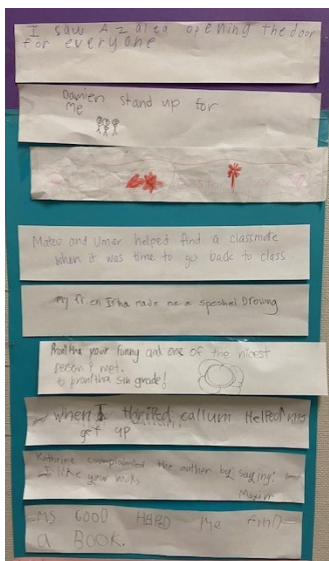 I saw Azalea opening the door
for everyone
Damien stand up for
Me
Mateo and Umer helped find a classmate
when it was time to go back to class
my frien Isha made me a speshel Drowing
Pranitha your funny and one of the nicest
person I met.
to pranitha 5th grade!
when I thripped callum Helped me
get up
Kathrine complomented the author by saying:
I like your books
Ms GOOD HEPD Me FIND
a BOOK.